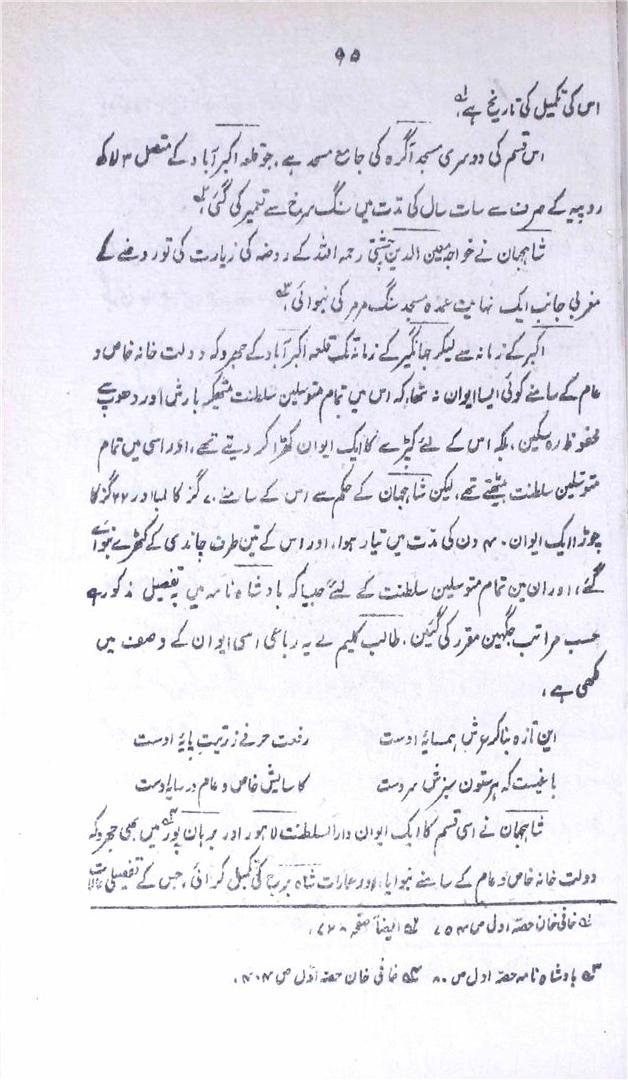 ۹۵
اس کی تکمیل کی تاریخ ہے ؂۱
اس قسم کی دوسری مسجد آگرہ کی جامع مسجد ہے، جو قلعہ اکبر آباد کے متصل ۳ لاکھ
روپیہ کے صرف سے سات سال کی مدت میں سنگ سرخ سے تعمیر کی گئی ؂۲
شاہجہان نے خواجہ معین الدین چشتی رحمہ اللہ کے روضہ کی زیارت کی تو روضے کے
مغربی جانب ایک نہایت عمدہ مسجد سنگ مرمر کی بنوائی ؂۳
اکبر کے زمانہ سے لیکر جہانگیر کے زمانہ تک قلعہ اکبر آباد کے جھروکہ دولت خانہ خاص و
عام کے سامنے کوئی ایسا ایوان نہ تھا کہ اس میں تمام متوسلین سلطنت بیٹھکر بارش اور دھوپ سے
محفوظ رہ سکین، بلکہ اس کے لئے کپڑے کا ایک ایوان کھڑا کر دیتے تھے، اور اسی میں تمام
متوسلین سلطنت بیٹھتے تھے، لیکن شاہجہان کے حکم سے اس کے سامنے ۷۰ گز کا لمبا اور ۲۲ گز کا
چوڑا ایک ایوان ۴۰ دن کی مدت میں تیار ہوا، اور اس کے تین طرف چاندی کے کٹھرے بنوائے
گئے، اور ان مین تمام متوسلین سلطنت کے لئے جیسا کہ بادشاہ نامہ میں بہ تفصیل مذکور ہے
حسب مراتب جگہین مقرر کی گئین، طالب کلیم نے یہ رباعی اسی ایوان کے وصف میں
لکھی ہے،
این تازہ بنا کہ عرش ہمسایۂ اوست رفعت حرفے ز رتبت پایۂ اوست
باغیست کہ ہر ستون سبزش سروست کاسایش خاص و عام در سایۂ اوست
شاہجہان نے اسی قسم کا ایک ایوان دارالسلطنت لاہور اور برہان پور ؂۴ میں بھی جھروکہ
دولت خانہ خاص و عام کے سامنے بنوایا، اور عمارات شاہ برج کی تکمیل کرائی، جس کے تفصیلی حالات
؂۱ خافی خان حصہ اول ص ۷۵۴ ؂۲ ایضاً صفحہ ۷۲۸،
؂۳ بادشاہ نامہ حصہ اول ص ۸۰ ؂۴ خافی خان حصہ اول ص ۴۰۴،